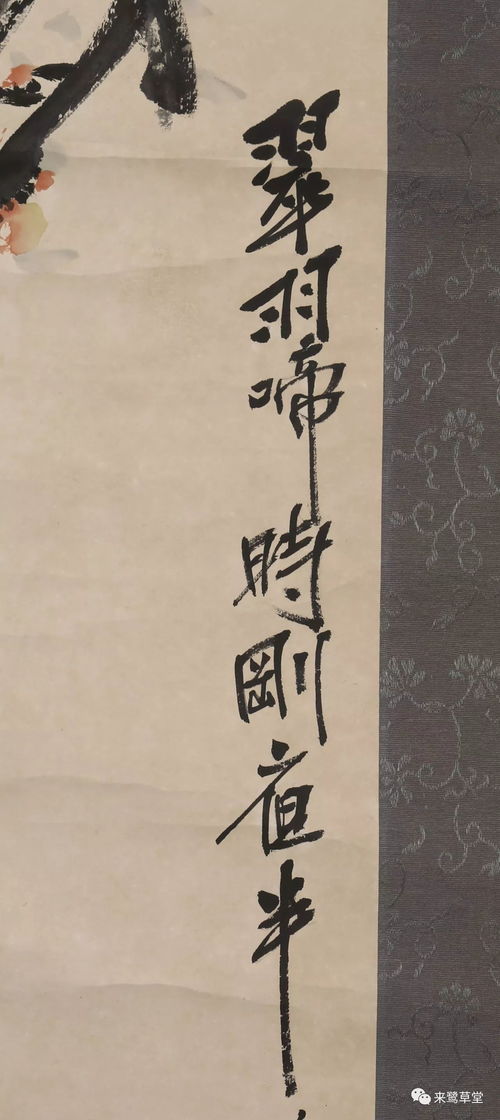 翠羽啼時剛亱半
来鹭草堂